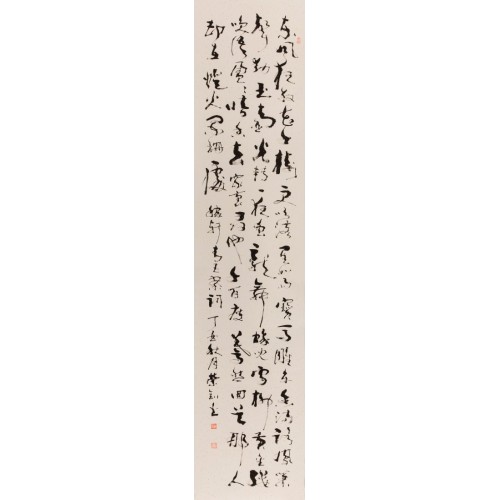 東風夜放花千樹更吹落星如雨寶馬雕車香滿路鳳簫
聲動玉壺光轉一夜魚龍舞蛾兒雪柳黃金縷
笑語盈盈暗香去眾裏尋他千百度驀然回首那人
却在燈火闌珊處 稼軒青玉案詞 丁亥秋月榮